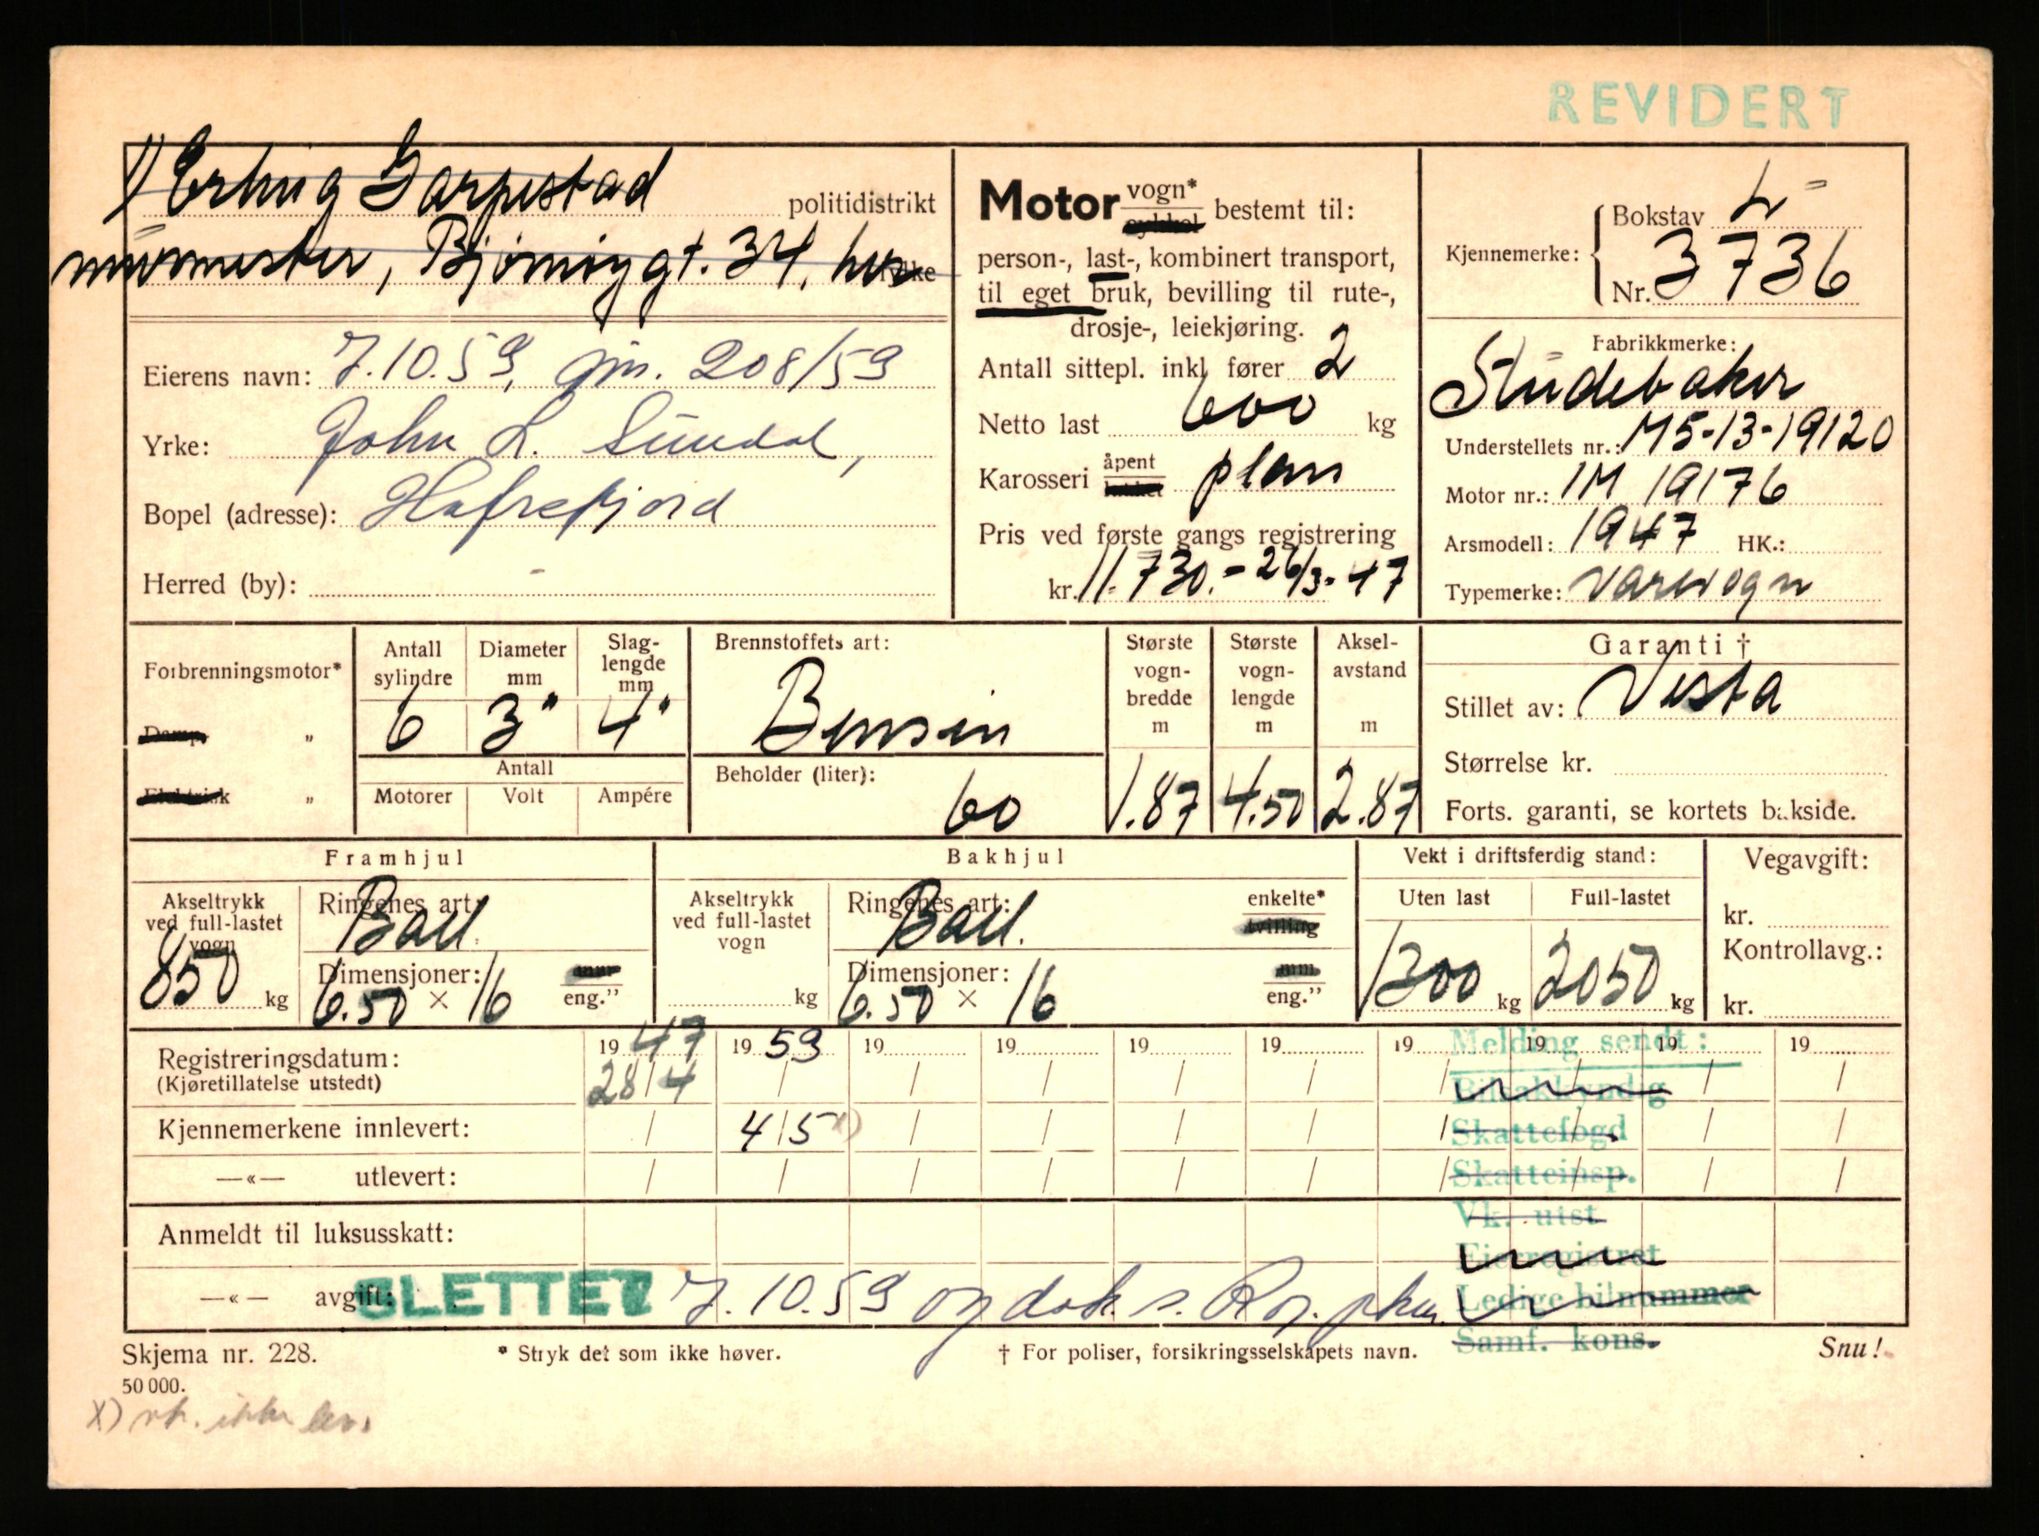 REVIDERT
1) Erling Garpestad politidistrikt
murmester, Bjørnøygt. 34, her fylke
Eierens navn: 7.10.59, gjn. 208/59
Yrke: John L. Sunddal,
Bopel (adresse): Hafrsfjord
Herred (by): -
Motor vogn* sykkel bestemt til:
person-, last-, kombinert transport,
til eget bruk, bevilling til rute-,
drosje-, leiekjøring.
Antall sittepl. inkl fører 2
Netto last 600 kg
Karosseri åpent lukket plan
Pris ved første gangs registrering
kr. 11.730.- 26/3-47
Kjennemerke: Bokstav L
Nr. 3736
Fabrikkmerke:
Studebaker
Understellets nr.: M5-13-19120
Motor nr.: 1M 19176
Arsmodell: 1947 HK.:
Typemerke: Varevogn
Forbrenningsmotor*
Damp „
Elektrisk „
Antall sylindre 6
Diameter mm 3"
Slag-lengde mm 4"
Antall
Motorer Volt Ampére
Brennstoffets art:
Bensin
Beholder (liter): 60
Største vogn-bredde m 1.87
Største vogn-lengde m 4.50
Aksel-avstand m 2.87
Garanti †
Stillet av: Vesta
Størrelse kr.
Forts. garanti, se kortets bakside.
Framhjul
Akseltrykk ved full-lastet vogn 850 kg
Ringenes art: Ball.
Dimensjoner: mm
6.50 × 16 eng.”
Bakhjul
Akseltrykk ved full-lastet vogn kg
Ringenes art: Ball. enkelte* tvilling
Dimensjoner: mm
6.50 × 16 eng.”
Vekt i driftsferdig stand:
Uten last 1200 kg
Full-lastet 2050 kg
Vegavgift:
kr.
Kontrollavg.:
kr.
Registreringsdatum: 1947 1959 19 19 19 19 19 19 19 19
(Kjøretillatelse utstedt) 28/4 / / / / / / / / /
Kjennemerkene innlevert: / 4/5 x) / / / / / / / /
—«— utlevert: / / / / / / / / / /
Anmeldt til luksusskatt:
—«— avgift: SLETTET 7.10.59
Melding sendt:
Bilsakkyndig
Skattefogd
Skatteinsp.
Vk. utst
Eierregistret
Ledige bilnummer
Samf. kons.
Skjema nr. 228. * Stryk det som ikke høver. † For poliser, forsikringsselskapets navn. Snu!
50 000.
x) vk. ikke lev.